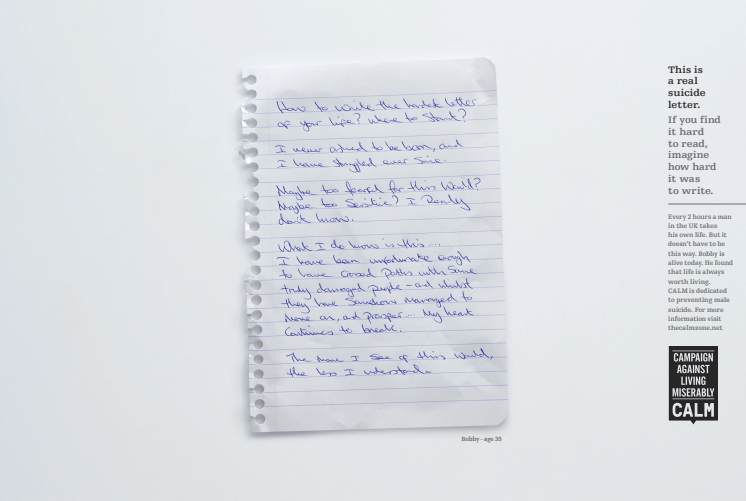 How to write the hardest letter
of your life? Where to start?
I never asked to be born, and
I have struggled ever since.
Maybe too fearful for this world?
Maybe too sensitive? I really
don't know.
What I do know is this...
I have been unfortunate enough
to have crossed paths with some
truly damaged people - and whilst
they have somehow managed to
move on, and prosper... My heart
continues to break.
The more I see of this world,
the less I understand.
Bobby - age 35
This is
a real
suicide
letter.
If you find
it hard
to read,
imagine
how hard
it was
to write.
Every 2 hours a man
in the UK takes
his own life. But it
doesn't have to be
this way. Bobby is
alive today. He found
that life is always
worth living.
CALM is dedicated
to preventing male
suicide. For more
information visit
thecalmzone.net
CAMPAIGN
AGAINST
LIVING
MISERABLY
CALM